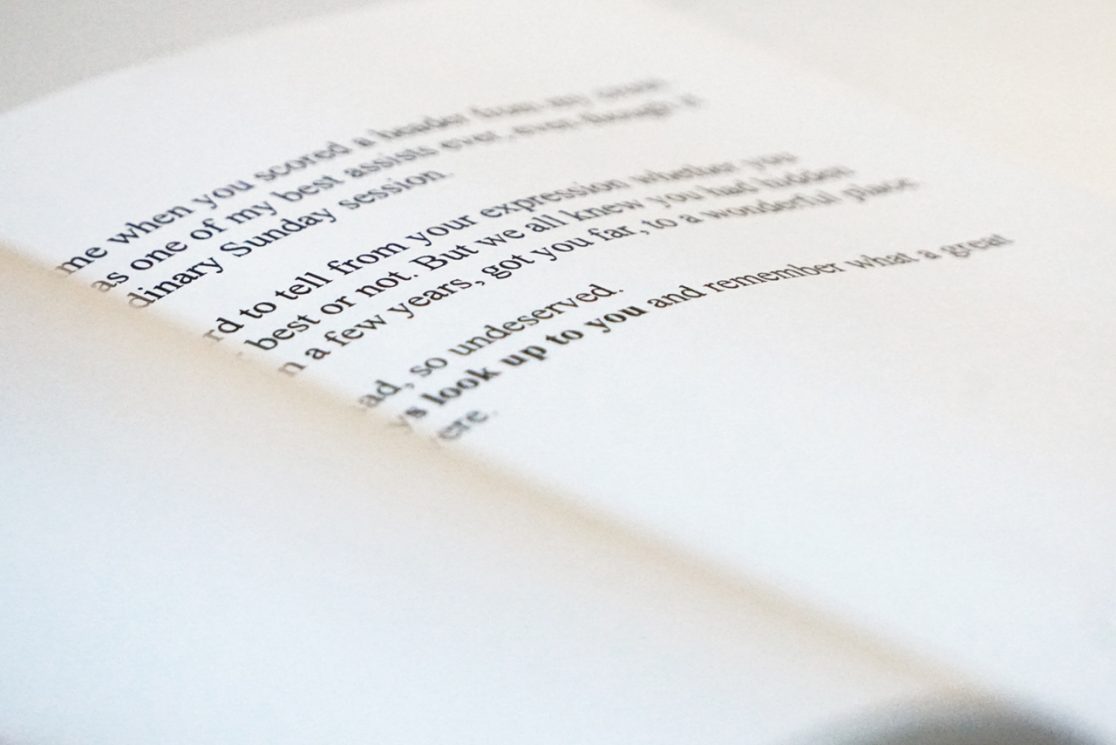 me when you scored a header from my
as one of my best assists ever, even though it
dinary Sunday session.
rd to tell from your expression whether you
best or not. But we all knew you had hidden
n a few years, got you far, to a wonderful place.
ad, so undeserved.
ys look up to you and remember what a great
ere.